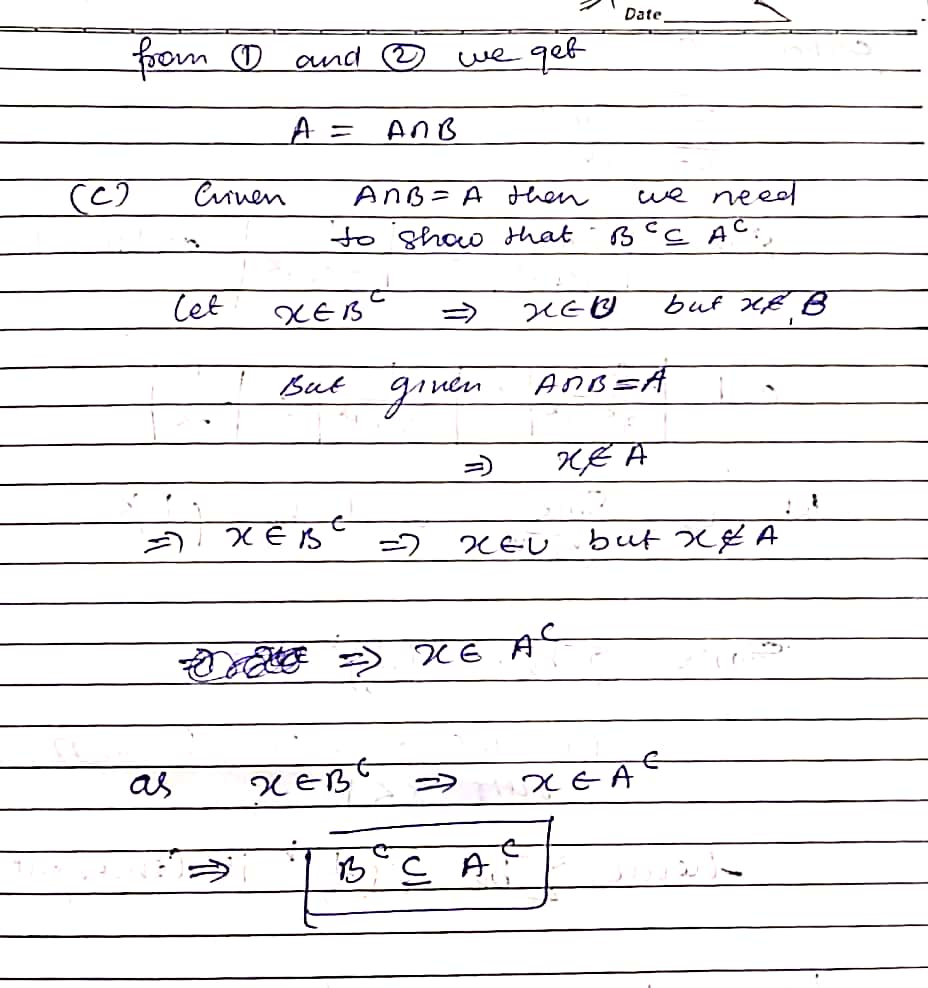 Date
from ① and ② we get
A = A∩B
(C) Given A∩B = A then we need
to show that B^C ⊆ A^C
Let x∈B^C ⇒ x∈U but x∉B
But given A∩B = A
⇒ x∉A
⇒ x∈B^C ⇒ x∈U but x∉A
⇒ x∈ A^C
as x∈B^C ⇒ x∈A^C
⇒ B^C ⊆ A^C